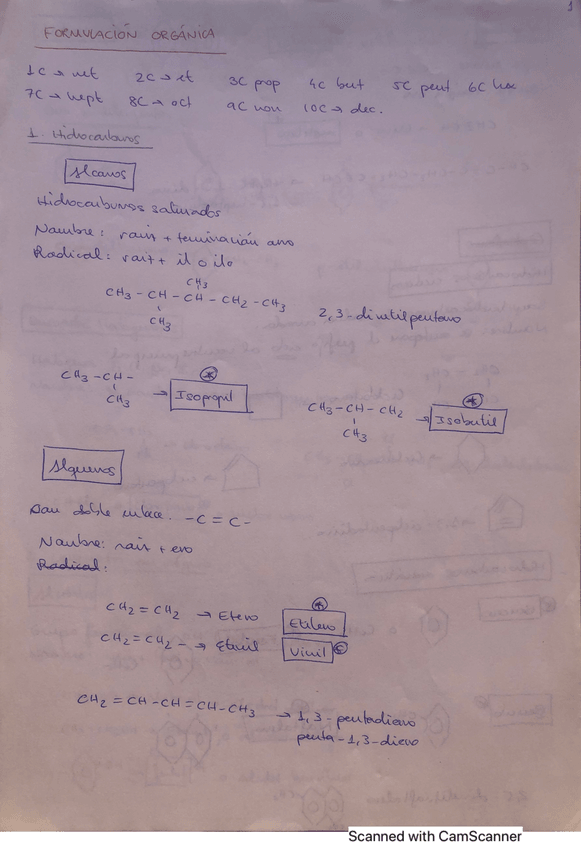 1
FORMULACIÓN ORGÁNICA
1C → met 2C → et 3C prop 4C but 5C pent 6C hex
7C → hept 8C → oct 9C non 10C → dec.
1. Hidrocarburos
Alcanos
Hidrocarburos saturados
Nombre: raiz + terminación ano
Radical: raiz + il o ilo
CH3
CH3 - CH - CH - CH2 - CH3
CH3
2,3-dimetilpentano
CH3 - CH -
CH3
→ Isopropil
CH3 - CH - CH2
CH3
→ Isobutil
Alquenos
Dan doble enlace. -C = C-
Nombre: raiz + eno
Radical:
CH2 = CH2 → Eteno Etileno
CH2 = CH2 - → Etenil Vinil
CH2 = CH - CH = CH - CH3 → 1,3-pentadieno
penta-1,3-dieno
Scanned with CamScanner